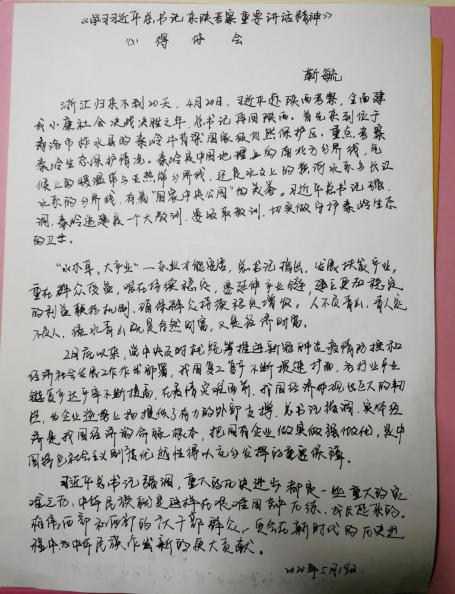 《学习习近平总书记来陕考察重要讲话精神》
心得体会
靳毓
浙江归来不到20天，4月20日，习近平赴陕西考察，全面建
成小康社会决战决胜之年，总书记再回陕西。首先来到位于
商洛市柞水县的秦岭牛背梁国家级自然保护区，重点考察
秦岭生态保护情况。秦岭是中国地理上的南北方分界线，气
候上的暖温带与亚热带分界线，还是水文上的黄河水系与长江
水系的分界线，有着“国家中央公园”的美誉。习近平总书记强
调，秦岭违建是一个大教训，要吸取教训，切实做守护秦岭生态
的卫士。
“小木耳，大产业”一东业才能安居，总书记指出，发展扶贫产业，
重在群众受益，难在持续稳定，要延伸产业链 建立更加稳定
的利益联结机制，确保群众持续稳定增收。人不负青山，青山定
不负人，绿水青山既是自然财富，又是经济财富。
2月底以来，党中央及时统筹推进新冠肺炎疫情防控和
经济社会发展工作作出部署，我国复工复产不断提速扩面，各行业产业
链复产达产率不断提高，在疫情灾难面前，我国经济体现出巨大的韧
性，为企业逆势上扬提供了有力的外部支撑。总书记强调，实体经
济是我国经济的命脉根本，把国有企业做实做强做优，是中
国特色社会主义制度优越性得以充分发挥的重要保障。
习近平总书记强调，重大的历史进步都是一些重大的灾
难之后，中华民族就是这样在艰难困苦中历练、成长起来的。
相信西部和西部的广大干部群众，更会在新时代的历史进
程中为中华民族作出新的更大贡献。
2020年5月19日.